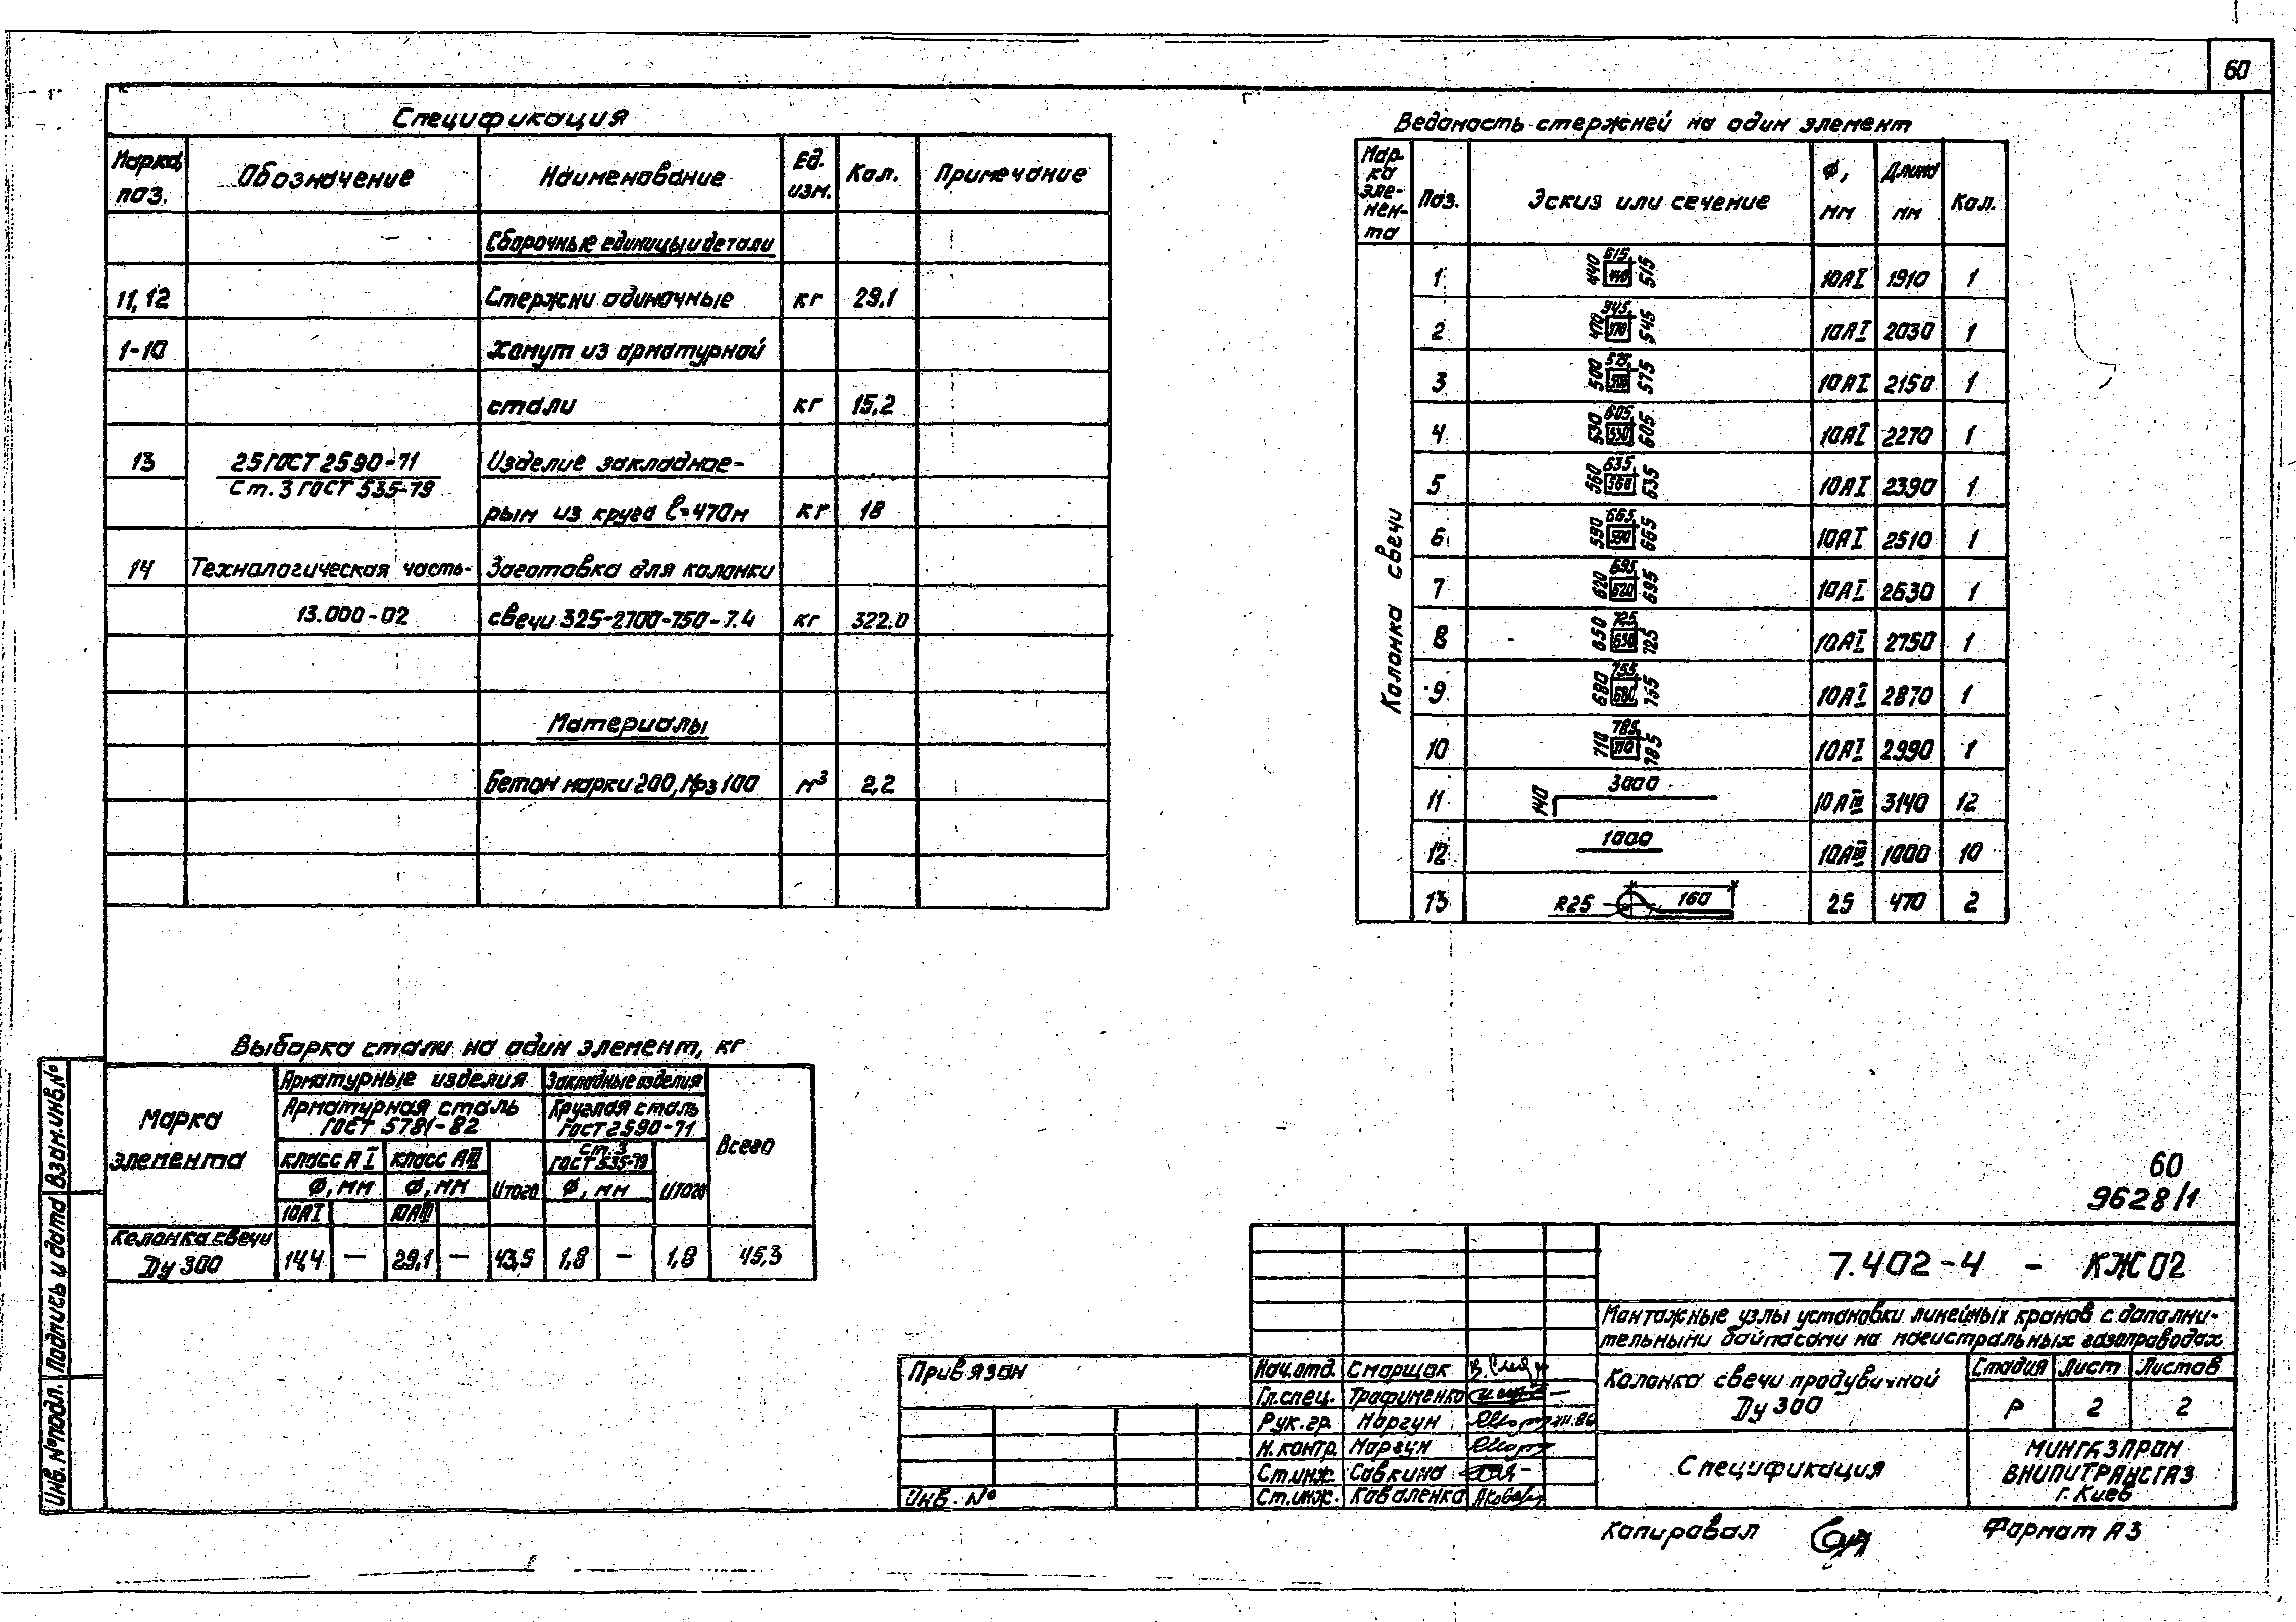 60
Спецификация
Марка, поз. Обозначение Наименование Ед. изм. Кол. Примечание
Сборочные единицы и детали
11, 12 Стержни одиночные кг 29.1
1-10 Хомут из арматурной
стали кг 15,2
13 25 ГОСТ 2590-71 Изделие закладное-
Ст. 3 ГОСТ 535-79
рым из круга ℓ=470м кг 18
14 Технологическая часть- Заготовка для колонки
13.000-02 свечи 325-2700-750-7.4 кг 322.0
Материалы
Бетон марки 200, Мрз 100 м³ 2,2
Ведомость стержней на один элемент
Марка элемента Поз. Эскиз или сечение Ф, мм Длина мм Кол.
Колонка свечи
1 440 515 440 515 10АI 1910 1
2 470 545 470 545 10АI 2030 1
3 500 575 500 575 10АI 2150 1
4 530 605 530 605 10АI 2270 1
5 560 635 560 635 10АI 2390 1
6 590 665 590 665 10АI 2510 1
7 620 695 620 695 10АI 2630 1
8 650 725 650 725 10АI 2750 1
9 680 755 680 755 10АI 2870 1
10 710 785 710 785 10АI 2990 1
11 140 3000 10АIII 3140 12
12 1000 10АIII 1000 10
13 R25 160 25 470 2
Выборка стали на один элемент, кг
Марка элемента
Арматурные изделия Закладные изделия Всего
Арматурная сталь ГОСТ 5781-82 Круглая сталь ГОСТ 2590-71
класс АI класс АIII Итого Ст.3 ГОСТ 535-79 Итого
Ф, мм Ф, мм Ф, мм
10АI 10АIII
Колонка свечи Ду 300 14,4 — 29,1 — 43,5 1,8 – 1,8 45,3
60
9628/1
7.402-4 - КЖ 02
Монтажные узлы установки линейных кранов с дополни-
тельными байпасами на магистральных газопроводах
Колонка свечи продувочной
Ду 300
Стадия Лист Листов
Р 2 2
Спецификация
МИНГАЗПРОМ
ВНИПИТРАНСГАЗ
г. Киев
Привязан
Инв. №
Нач.отд. Сморщак
Гл.спец. Трофименко
Рук.гр. Моргун
Н.контр. Моргун
Ст.инж. Савкина
Ст.инж. Коваленко
Копировал
Формат А3
Инв. № подл. Подпись и дата Взам. инв. №